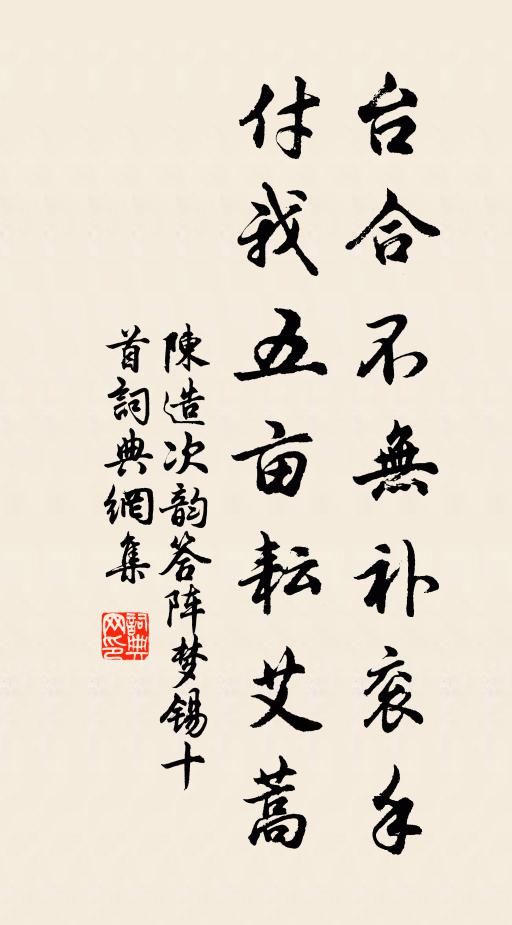 台合不無补衮手
付我五亩耘艾蒿
陳造次韵答阵梦锡十
首詞典網集
詞典网印